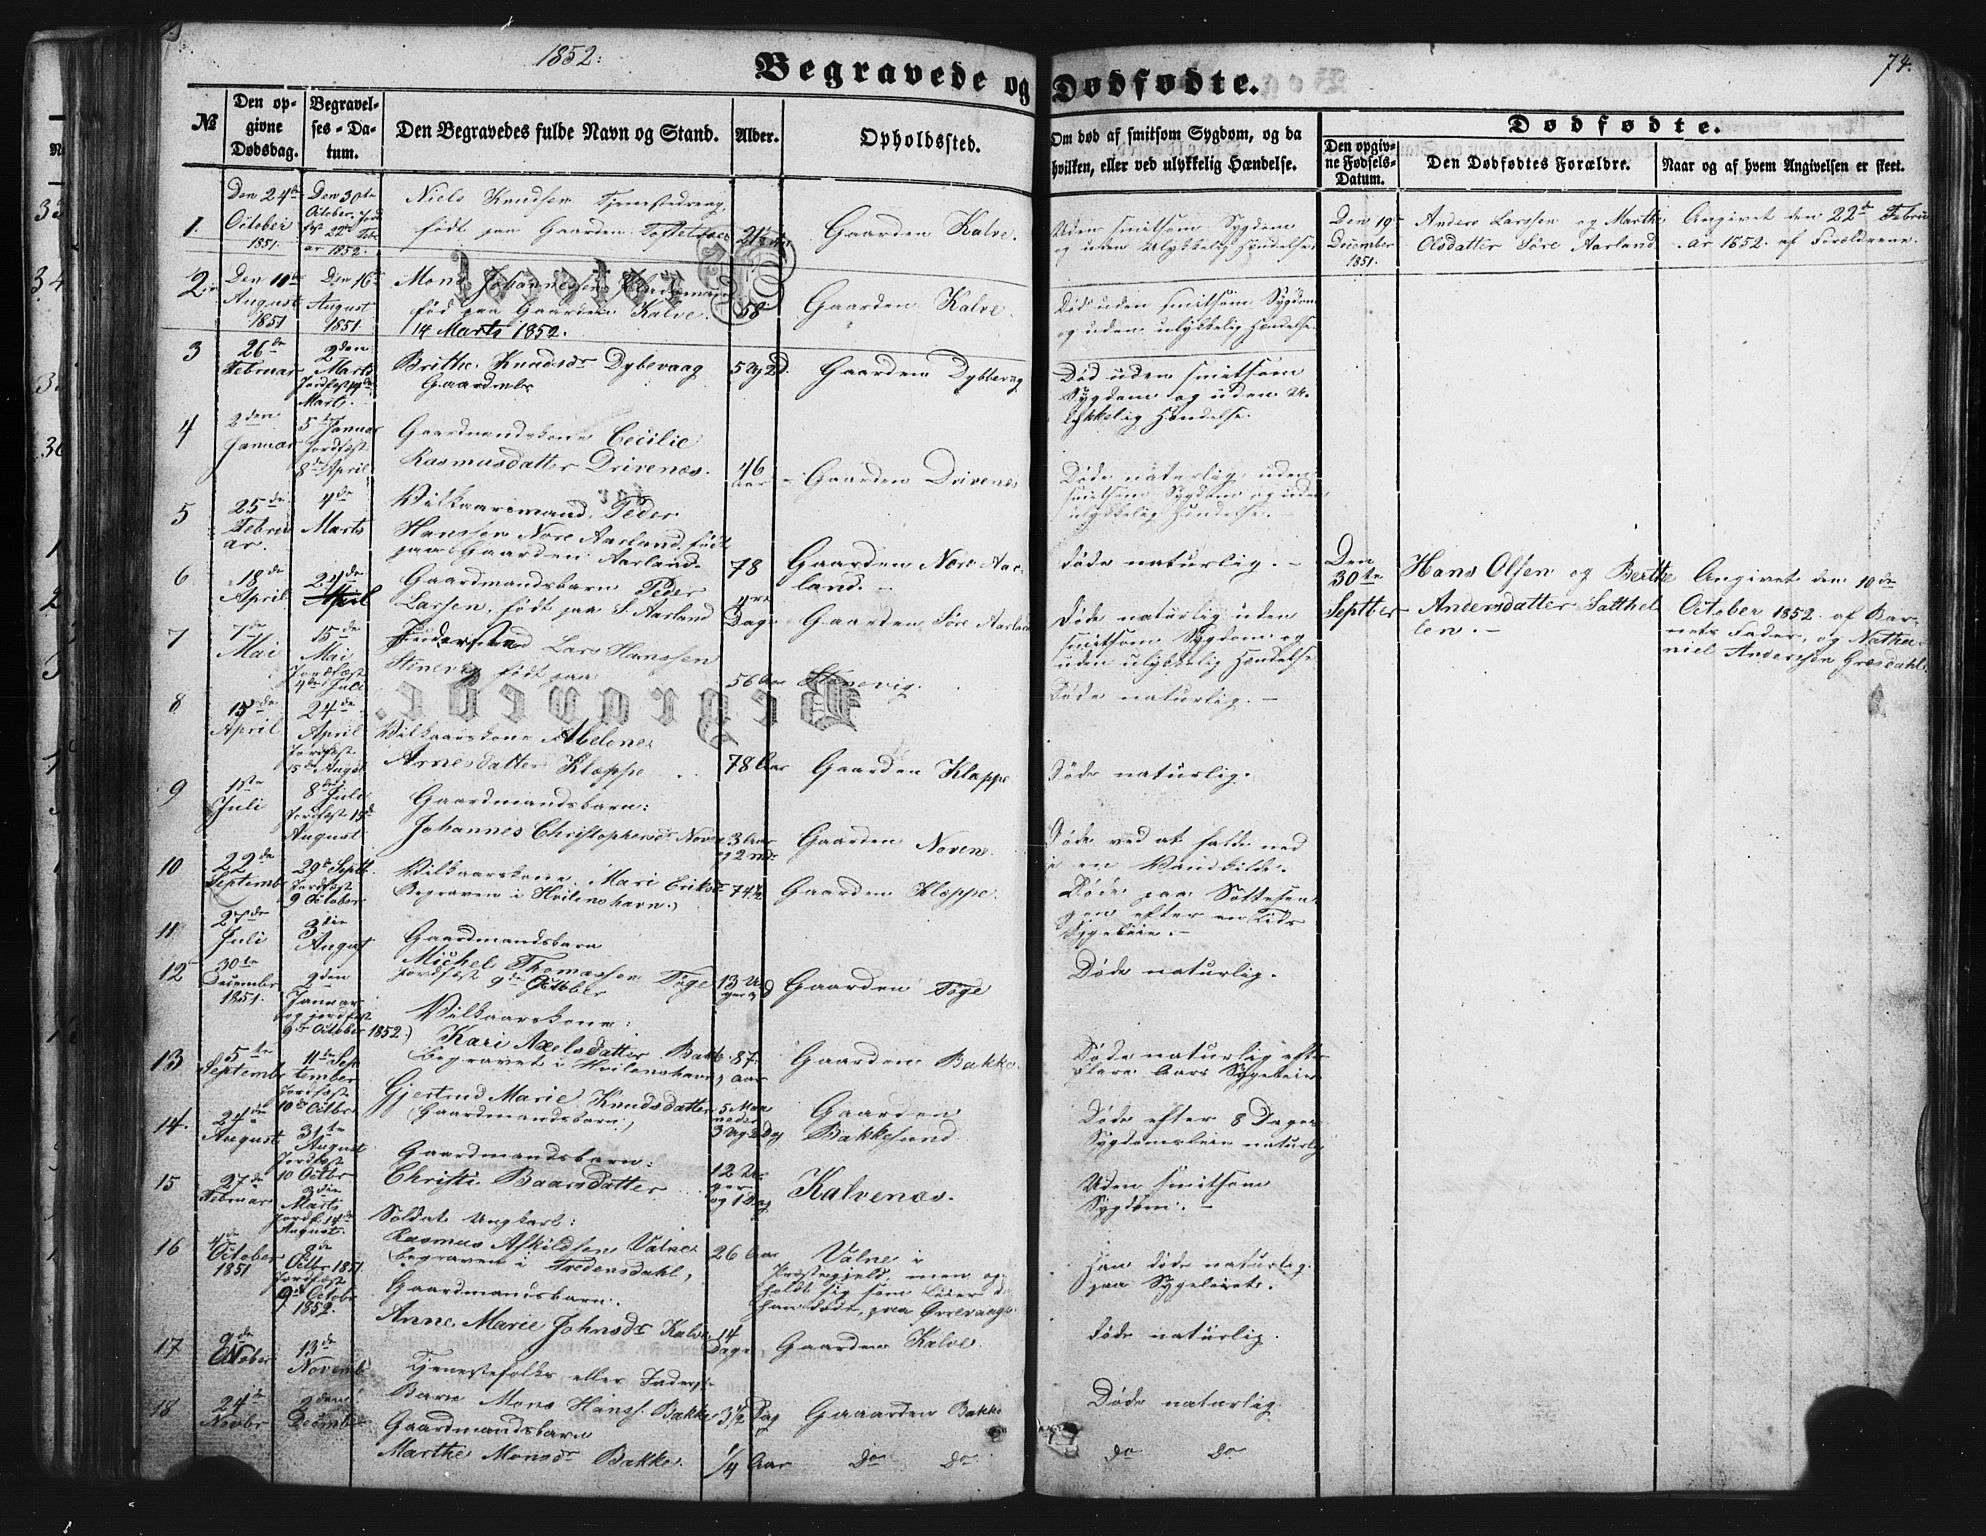 1852.
Begravede og Dødfødte.
74.
№
Den opgivne Dødsdag.
Begravelses-Datum.
Den Begravedes fulde Navn og Stand.
Alder.
Opholdssted.
Om død af smitsom Sygdom, og da hvilken, eller ved ulykkelig Hændelse.
Dødfødte.
Den opgivne Fødsels-Datum.
Den Dødfødtes Forældre.
Naar og af hvem Angivelsen er skeet.
1.
Den 24de October 1851.
Den 30te October, 22de 1852.
Niels Knudsen Tjenestedreng,
født paa Gaarden
Gaarden Kalve.
Uden smitsom Sygdom
og uden Ulykkelig Hændelse.
Den 19 December 1851.
Anders Larssen og Marthe
Olsdatter Søre Aarland.
Angivet den 22de Febru
ar 1852. af Forældrene.
2.
Den 10de August 1851
Den 16 August 1851.
Mons Johannessen
fød paa Gaarden Kalve.
14 Marts 1852.
58
Gaarden Kalve.
Død uden smitsom Sygdom
og uden ulykkelig Hændelse.
3
26de Februar
2den Marts
Jordfæst
Marts.
Brithe Knudsdr Dybevaag
Gaarden Dybbevag
Død uden smitsom
Sygdom og uden u-
lykkelig Hændelse.
4
2den Januar
5te Januar
Jordfæst
8de April
Gaardmandskone Cecilie
Rasmusdatter Drivenæs.
46 Aar
Gaarden Drivenes
Døde naturlig uden
smitsom Sygdom og uden
ulykkelig Hændelse.
5
25de Februar.
4de Marts
Vilkaarsmand, Peder
Hanssen Nore Aarland, født
paa Gaarden Aarland.
78
Gaarden Nore Aarland.
Døde naturlig.
Den 30te Septber
Hans Olsen og Berthe
Andersdatter Satthel
len.
Angivet den 10de
October 1852. af Bar-
nets Fader, og Natha-
niel Anderssen Græsdahl.
6
18de April
24de April
Gaardmandsbarn Peder
Larsen, født paa S. Aarland
Dage
Gaarden Søre Aarland
Døde naturlig uden
smitsom Sygdom og
uden ulykkelig Hændelse
7
7de Mai
15de Mai
Jordfæst
4de Juli
Lars Hanssen
Stenevig født paa
56 Aar
Stenevig.
Døde naturlig.
8
15de April
24de April
Jordfæst
15de August
Vilkaarskone Abelone
Arnesdatter Kloppe
78 Aar
Gaarden Kloppe
Døde naturlig.
9
1ste Juli
8de Juli
Jordfæst 15de August
Gaardmandsbarn:
Johannes Christophersdr Noven
3 Aar og 2 md.
Gaarden Noven.
Døde ved at falde ned
i en Vandkilde.
10
22de Septemb
29de Septb.
Jordfæst
9 October
Vilkaarskone. Mari Eriksdr
Begraven i Hvilenshavn.)
74½
Gaarden Kloppe.
Døde paa Sottesen-
gen efter en Tids
Sygeleie.
11
27de Juli
3die August
Gaardmandsbarn
Michel Thomassen Toge
jordfæst 9de Octbber
13 Uger
Gaarden Toge
Døde naturlig.
12
30te December 1851.
2den Januar
og jordfæst
9de October 1852.)
Vilkaarskone:
Kari Axelsdatter Bakke
Begravet i Hvilenshavn,
87 Aar
Gaarden Bakke.
Døde naturlig efter
flere Aars Sygeleie
13
5te Septembr
11te September
Jordfæst
10de Octbr
Gjertrud Marie Knudsdatter
(Gaardmandsbarn)
5 Maaneder
Gaarden
Bakkesund.
Døde efter 8 Dages
Sygdomsleie naturlig
14.
24de August
31te August
Jordfæst
10 Octbr
Gaardmandsbarn:
Christi Baarsdatter
12 Uger og 1 Dag
Kalvenæs.
Uden smitsom
Sygdom.
15
27de Februar
3die Marts
Jordf. 14de August.
Soldat Ungkarl:
Rasmus Askildsen Valne
begraven i Fredensdahl,
26 Aar
Valne i
Præstegjeld men op-
holdt sig som
han døde, paa
Han døde naturlig
paa Sygeleiet.
16
4de October 1851
8de Octbr 1851
Jordfæst
9de Octobr 1852.
Gaardmandsbarn.
Anne Marie Johnsdr Kalve
14 Dage
Gaarden Kalve.
Døde naturlig.
17
9de
13de Novemb
Tjenestefolks eller Inderst
Barn Mons Hanss. Bakke
3½ Dag
Gaaarden Bakke
Døde naturlig.
18
24de Novbr
2den Decembr
Gaardmandsbarn
Marthe Monsdr Bakke.
1/4 Aar
Do Do
Do Do